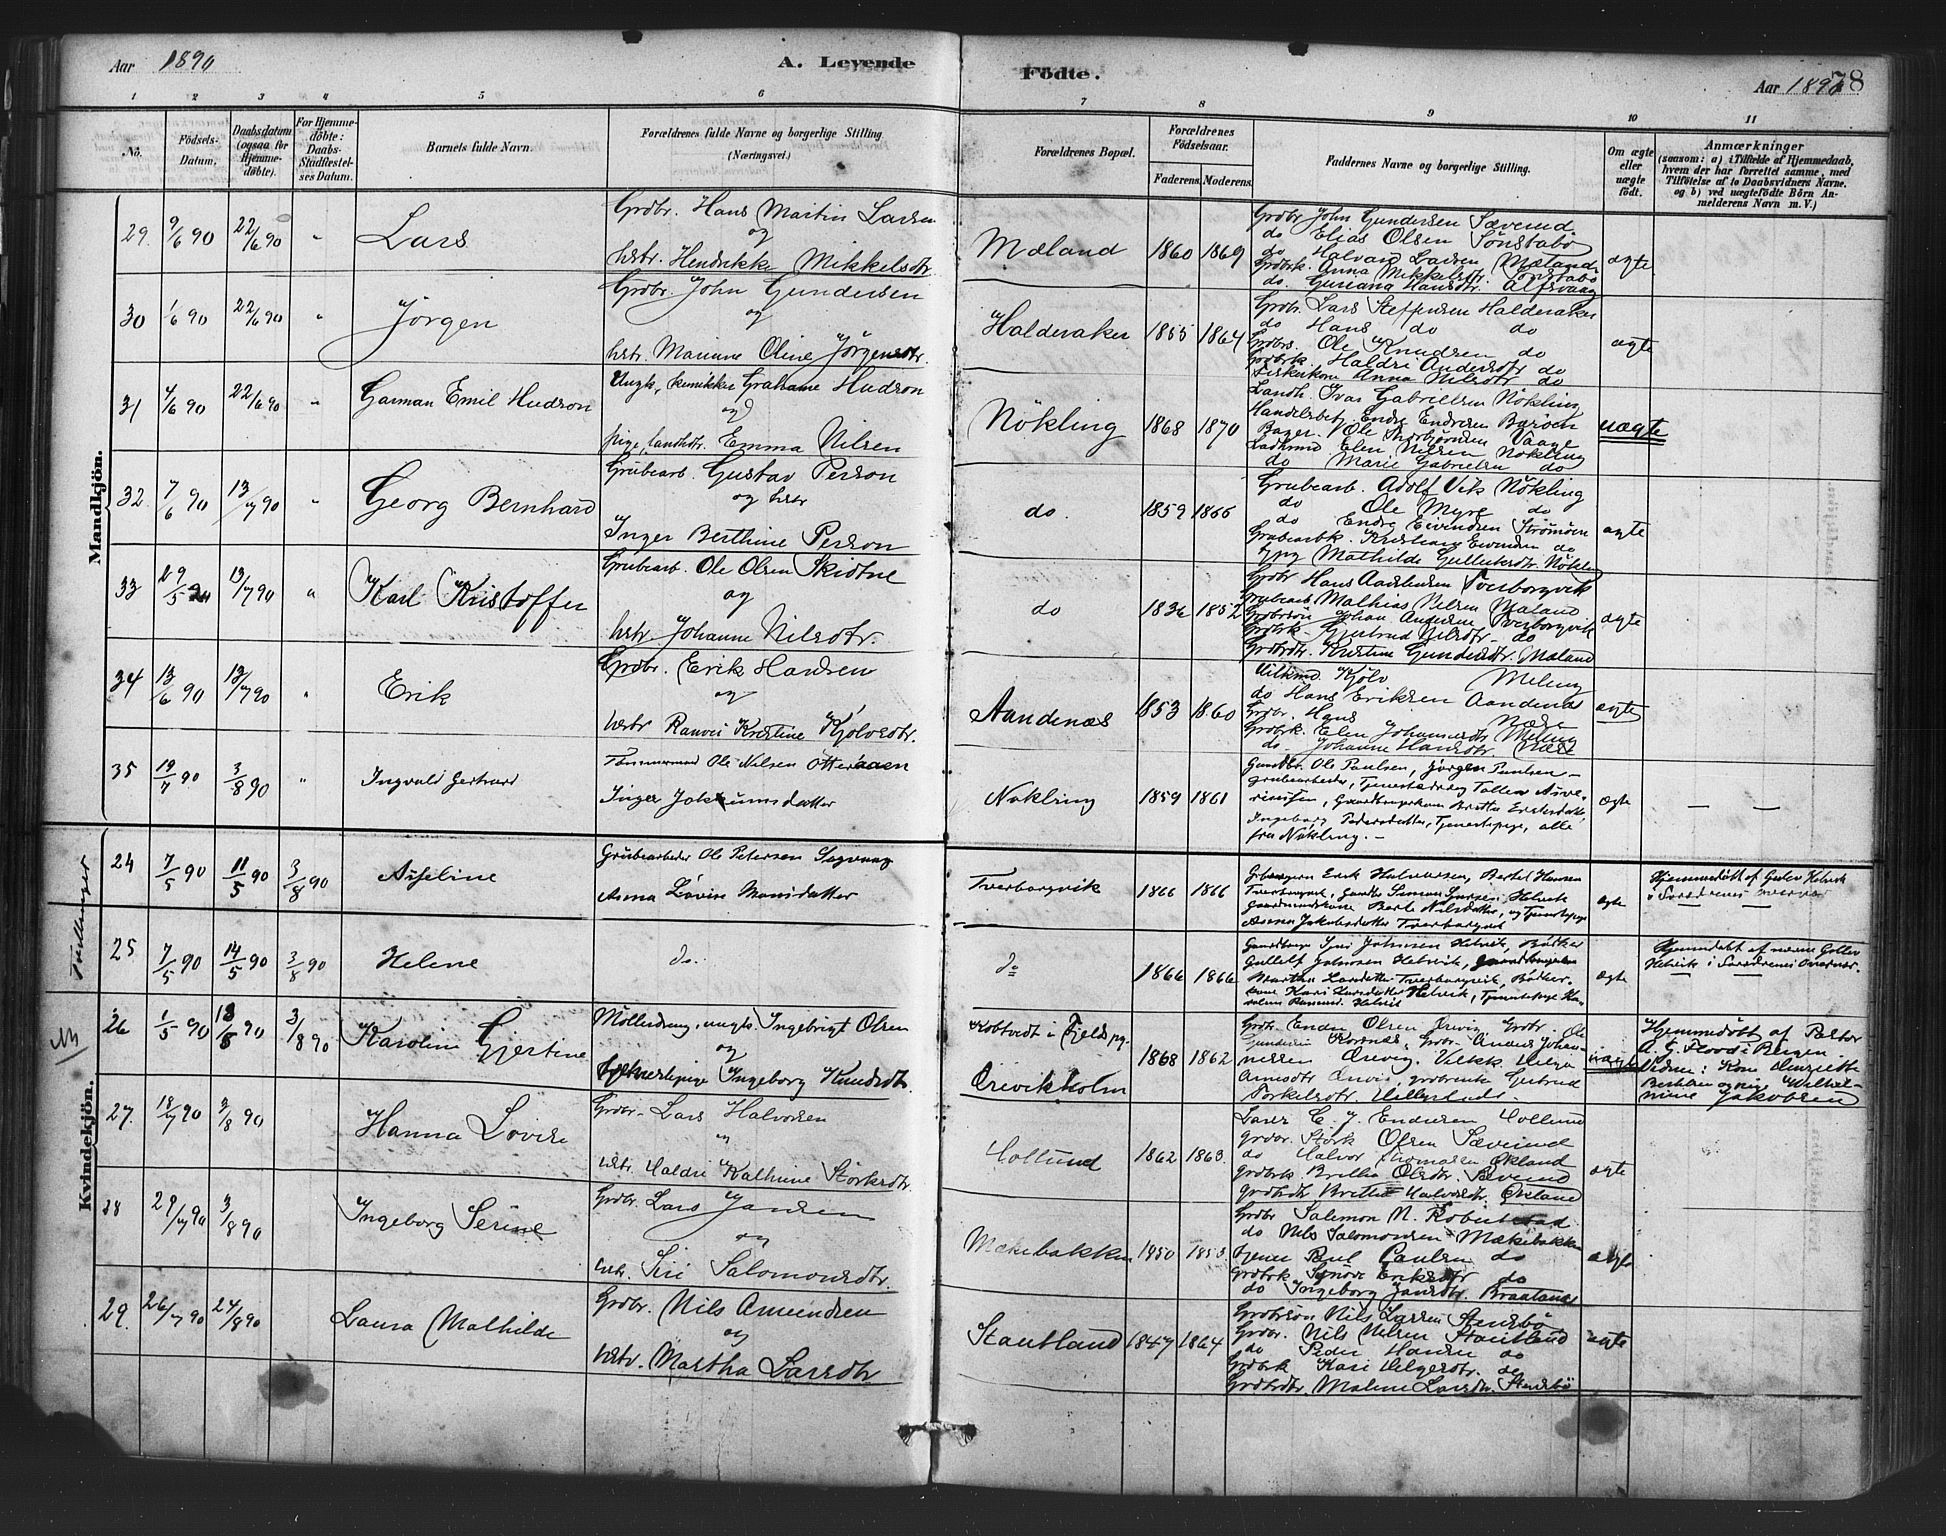 Aar 1890
A. Levende
Födte.
Aar 1890
78
1 2 3 4 5 6 7 8 9 10 11
No.
Födsels-Datum.
Daabsdatum (ogsaa for Hjemme-döbte).
For Hjemme-döbte: Daabs-Stadfæstel-ses Datum.
Barnets fulde Navn.
Forældrenes fulde Navne og borgerlige Stilling. (Næringsvei.)
Forældrenes Bopæl.
Forældrenes Födselsaar.
Faderens. Moderens.
Faddernes Navne og borgerlige Stilling.
Om ægte eller uægte födt.
Anmærkninger
(saasom: a) i Tilfælde af Hjemmedaab, hvem der har forrettet samme, med Tilföielse af to Daabsvidners Navne, og b) ved uægtefödte Börn An-melderens Navn m. V.)
Mandkjön.
29. 9/6 90 22/6 90 " Lars
Grdbr. Hans Martin Larsen
og
hstr. Hendrikke Mikkelsdtr.
Mæland 1860 1869
Grdbr John Gundersen Sæverud
do Elias Olsen Sönstabö
do Halvard Larsen Mæland
Grdbrk. Anna Mikkelsdtr. Sönstabö
do. Guriana Hansdtr. Alfsvaag
ægte
30 1/6 90 22/6 90 " Jörgen
Grdbr. John Gundersen
og
hstr. Marinne Oline Jörgensdtr.
Halderaker 1855 1864
Grdbr. Lars Steffensen Halderaker
do Hans do do
Grdbrs. Ole Knudsen do
Grdbrk. Haldri Andersdtr do
Anna Nilsdtr do
ægte
31 4/6 90 22/6 90 " Garman Emil Hudson
Ungk, kemikker Grahame Hudson
og
pige, landhdtr. Emma Nilsen
Nökling 1868 1870
Landh. Ivar Gabrielsen Nökling
Handelsbetj. Endre Endresen Baröen
Bager Ole Thorbjörnsen Vaage
Ladhmd Elen Nilsen Nökling
do Marie Gabrielsen do
uægte
32. 7/6 90 13/7 90 " Georg Bernhard
Grubearb. Gustav Person
og hstr
Inger Berthine Person
do. 1859 1866
Grubearb. Adolf Vik Nökling
do Ole Myre do
do Endre Eivindsen Strömöen
Grubearbk. Kristiane Eivindsen do
Mathilde Gulleiksdtr Nökling
ægte
33 29/5 90 13/7 90 " Karl Kristoffer
Grubearb. Ole Olsen Skidtne
og
hstr Johanne Nilsdtr.
do 1836 1852
Grdbr Hans Aadnesen Tverborgvik
Grubearb Mathias Nilsen Mæland
Johan Andersen Tverborgvik
Grdbrk. Gjertrud Nilsdtr. do
Grdbrdtr. Kristine Gundersdtr. Mæland
ægte
34 13/6 90 13/7 90 " Erik
Grdbr. Erik Hansen
og
hstr Ranvei Kristine Kjölvsdtr.
Aandenæs 1853 1860
Kjölv Meling
do Hans Eriksen Aandenæs
Grdbr. Hans Næse
Grdbrk. Elen Johannesdtr Meling
do. Johanne Hansdtr. Næse
ægte
35 19/7 90 3/8 90 " Ingvald Gerhard
Tömmermand Ole Nilsen Otteraaen
Inger Jokumsdatter
Nökling 1859 1861
Gaardbr. Ole Paulsen, Jörgen Paulsen
grubearbeider, Tjenestedreng Tollev
Gaardbrugerkone Brita Eriksdatter,
Ingeborg Pedersdatter, Tjenestepige, alle
fra Nökling. -
ægte — —
Tvillinger
24 7/5 90 11/5 90 3/8 90 Aiseline
Grubearbeider Ole Petersen Sagvaag
Anna Lovise Monsdatter
Tverborgvik 1866 1866
Erik Halvorsen, Bertel Hansen
Tverborgvik, Simon Helvik
Gaardmandskone Berte Nilsdatter, og Tjenestepige
Jakobsdatter Tverborgvik
ægte
Hjemmedöbt af Gulev Helvik
i Forældrenes Overvær
25 7/5 90 14/5 90 3/8 90 Helene
do.
do 1866 1866
Johnsen Helvik, Bödker
Gullef Johnsen Helvik,
Marthe Larsdatter Tverborgvik, Bödker-
kone Kari Larsdatter Helvik, Tjenestepige
Helvik
ægte
Hjemmedöbt af
Helvik i Forældrenes Overvær.
Kvindekjön.
26 1/5 90 18/5 90 3/8 90 Karoline Gjertine
Möllerdreng, ungk. Ingebrigt Olsen
og
Ingeborg Knudsdtr
Kobtvedt i Fjeld pg.
Örevikholm 1868 1862
Grdbr. Endre Olsen Örevig, Grdbr. Ole
Gundersen Kornæs, Grdbr. Anders Johan-
nessen Örevig. Helga
Arnesdtr Örevig, grdbrenke Gertrud
Torkelsdtr. Hellgestad.
uægte
Hjemmedöbt af Doktor
A. G. Flood i Bergen.
Vidner: Kone Henriette
Berthlen og pige Wilhel-
mine Jakobsen
27. 18/7 90 3/8 90 Hanna Lovise
Grdbr. Lars Halvorsen
"
hstr. Haldri Kathrine Störksdtr.
Hollund 1862 1863.
C. J. Endresen Hollund
grdbr. Störk Olsen Sæverud
do Halvor Thomasen Økland
grdbrk Britha Olsdtr. Sæverud
grdbrdtr Britha Halvorsdtr. Økland
ægte
28 29/7 90 3/8 90 Ingeborg Serine
Grdbr. Lars Jansen
og
hstr. Siri Salomonsdtr.
Mækebakken 1850 1853
Grdbr Salomon N. Robertstad
do Nils Salomonsen Mækebakken
Tjener Paul Paulsen do
Grdbrk Synöve Eriksdtr do
do Ingeborg Jansdtr. Braatland
ægte
29. 26/7 90 24/8 90 Laura Mathilde
Grdbr. Nils Amundsen
og
hstr. Martha Larsdtr
Stautland 1847 1864
Grdbrsön Nils Larsen Stensbö
Grdbr. Nils Nilsen Stautland
do Peder Hansen do
Grdbrk Kari Helgesdtr. do
Grdbrdtr Malene Larsdtr. Stensbö
ægte